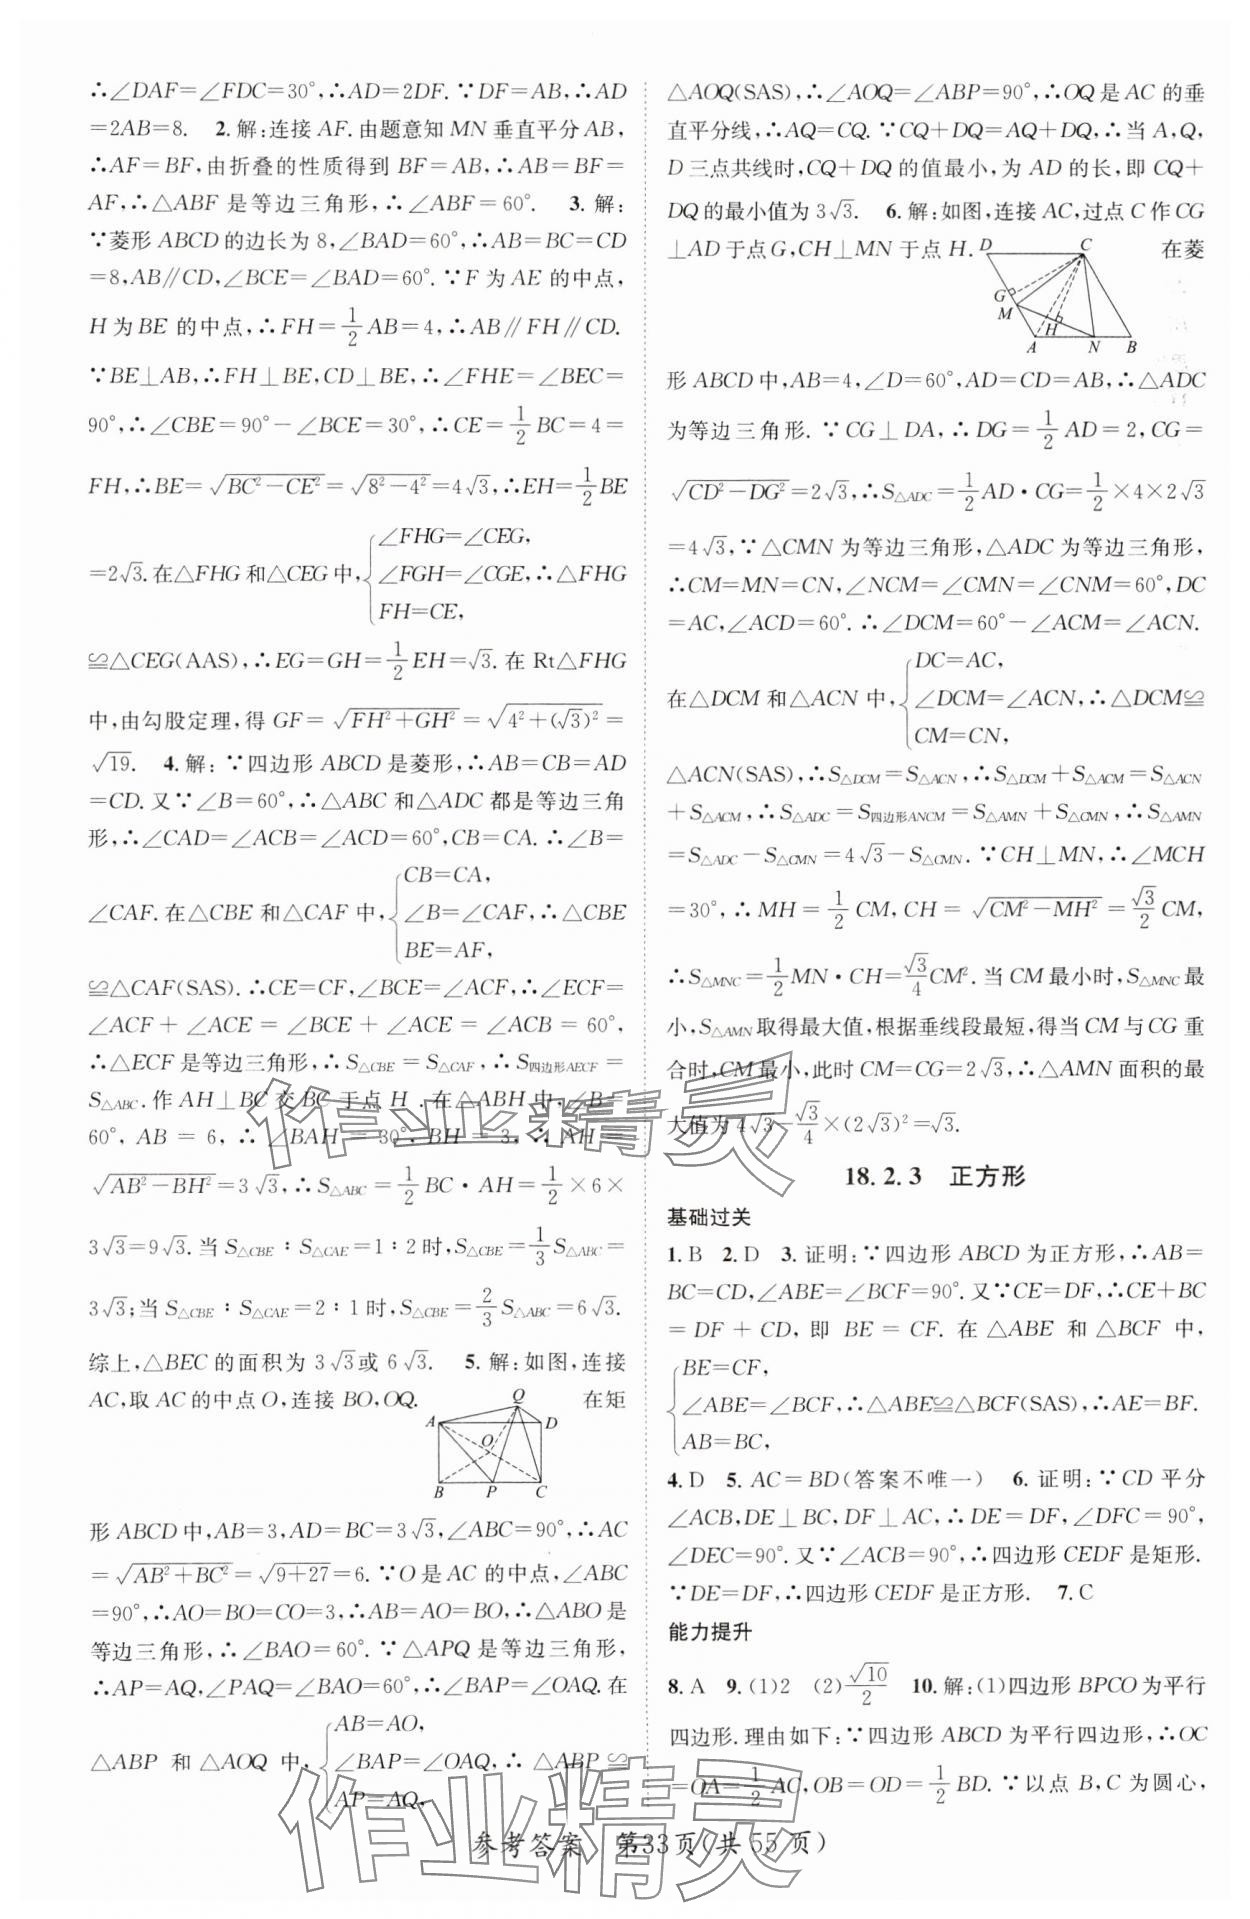 ∴∠DAF=∠FDC=30°,∴AD=2DF.∵DF=AB,∴AD
=2AB=8.　2.解:连接 AF.由题意知 MN 垂直平分 AB,
∴AF=BF,由折叠的性质得到 BF=AB,∴AB=BF=
AF,∴△ABF 是等边三角形,∴∠ABF=60°.　3.解:
∵菱形 ABCD 的边长为 8,∠BAD=60°,∴AB=BC=CD
=8,AB∥CD,∠BCE=∠BAD=60°.∵F 为 AE 的中点,
H 为 BE 的中点,∴FH=1/2AB=4,∴AB∥FH∥CD.
∵BE⊥AB,∴FH⊥BE,CD⊥BE,∴∠FHE=∠BEC=
90°,∴∠CBE=90°-∠BCE=30°,∴CE=1/2BC=4=
FH,∴BE=√(BC²-CE²)=√(8²-4²)=4√3,∴EH=1/2BE
=2√3.在△FHG 和△CEG 中,{∠FHG=∠CEG,
∠FGH=∠CGE,∴△FHG
FH=CE,
≌△CEG(AAS),∴EG=GH=1/2EH=√3.在 Rt△FHG
中,由勾股定理,得 GF=√(FH²+GH²)=√(4²+(√3)²)=
√19.　4.解:∵四边形 ABCD 是菱形,∴AB=CB=AD
=CD.又∵∠B=60°,∴△ABC 和△ADC 都是等边三角
形,∴∠CAD=∠ACB=∠ACD=60°,CB=CA.∴∠B=
∠CAF.在△CBE 和△CAF 中,{CB=CA,
∠B=∠CAF,∴△CBE
BE=AF,
≌△CAF(SAS).∴CE=CF,∠BCE=∠ACF,∴∠ECF=
∠ACF+∠ACE=∠BCE+∠ACE=∠ACB=60°,
∴△ECF 是等边三角形,∴S△CBE=S△CAF,∴S四边形AECF=
S△ABC.作 AH⊥BC 交 BC 于点 H.在△ABH 中,∠B=
60°,AB=6,∴∠BAH=30°,BH=3,∴AH=
√(AB²-BH²)=3√3,∴S△ABC=1/2BC·AH=1/2×6×
3√3=9√3.当 S△CBE∶S△CAE=1∶2时,S△CBE=1/3S△ABC=
3√3;当 S△CBE∶S△CAE=2∶1时,S△CBE=2/3S△ABC=6√3.
综上,△BEC 的面积为 3√3或 6√3.　5.解:如图,连接
AC,取 AC 的中点 O,连接 BO,OQ.　在矩
A B P C D O Q
形 ABCD 中,AB=3,AD=BC=3√3,∠ABC=90°,∴AC
=√(AB²+BC²)=√(9+27)=6.∵O 是 AC 的中点,∠ABC
=90°,∴AO=BO=CO=3,∴AB=AO=BO,∴△ABO 是
等边三角形,∴∠BAO=60°.∵△APQ 是等边三角形,
∴AP=AQ,∠PAQ=∠BAO=60°,∴∠BAP=∠OAQ.在
△ABP 和△AOQ 中,{AB=AO,
∠BAP=∠OAQ,∴△ABP≌
AP=AQ,
△AOQ(SAS),∴∠AOQ=∠ABP=90°,∴OQ 是 AC 的垂
直平分线,∴AQ=CQ.∵CQ+DQ=AQ+DQ,∴当 A,Q,
D 三点共线时,CQ+DQ 的值最小,为 AD 的长,即 CQ+
DQ 的最小值为 3√3.　6.解:如图,连接 AC,过点 C 作 CG
⊥AD 于点 G,CH⊥MN 于点 H.　在菱
D C G M H A N B
形 ABCD 中,AB=4,∠D=60°,AD=CD=AB,∴△ADC
为等边三角形.∵CG⊥DA,∴DG=1/2AD=2,CG=
√(CD²-DG²)=2√3,∴S△ADC=1/2AD·CG=1/2×4×2√3
=4√3,∵△CMN 为等边三角形,△ADC 为等边三角形,
∴CM=MN=CN,∠NCM=∠CMN=∠CNM=60°,DC
=AC,∠ACD=60°.∴∠DCM=60°-∠ACM=∠ACN.
在△DCM 和△ACN 中,{DC=AC,
∠DCM=∠ACN,∴△DCM≌
CM=CN,
△ACN(SAS),∴S△DCM=S△ACN,∴S△DCM+S△ACM=S△ACN
+S△ACM,∴S△ADC=S四边形ANCM=S△AMN+S△CMN,∴S△AMN
=S△ADC-S△CMN=4√3-S△CMN.∵CH⊥MN,∴∠MCH
=30°,∴MH=1/2CM,CH=√(CM²-MH²)=√3/2CM,
∴S△MNC=1/2MN·CH=√3/4CM².当 CM 最小时,S△MNC最
小,S△AMN取得最大值,根据垂线段最短,得当 CM 与 CG 重
合时,CM 最小,此时 CM=CG=2√3,∴△AMN 面积的最
大值为 4√3-√3/4×(2√3)²=√3.
18.2.3　正方形
基础过关
1.B　2.D　3.证明:∵四边形 ABCD 为正方形,∴AB=
BC=CD,∠ABE=∠BCF=90°.又∵CE=DF,∴CE+BC
=DF+CD,即 BE=CF.在△ABE 和△BCF 中,
{BE=CF,
∠ABE=∠BCF,∴△ABE≌△BCF(SAS),∴AE=BF.
AB=BC,
4.D　5.AC=BD(答案不唯一)　6.证明:∵CD 平分
∠ACB,DE⊥BC,DF⊥AC,∴DE=DF,∠DFC=90°,
∠DEC=90°.又∵∠ACB=90°,∴四边形 CEDF 是矩形.
∵DE=DF,∴四边形 CEDF 是正方形.　7.C
能力提升
8.A　9.(1)2　(2)√10/2　10.解:(1)四边形 BPCO 为平行
四边形.理由如下:∵四边形 ABCD 为平行四边形,∴OC
=OA=1/2AC,OB=OD=1/2BD.∵以点 B,C 为圆心,
参考答案　第33页(共 55 页)
作业精灵
作业精灵